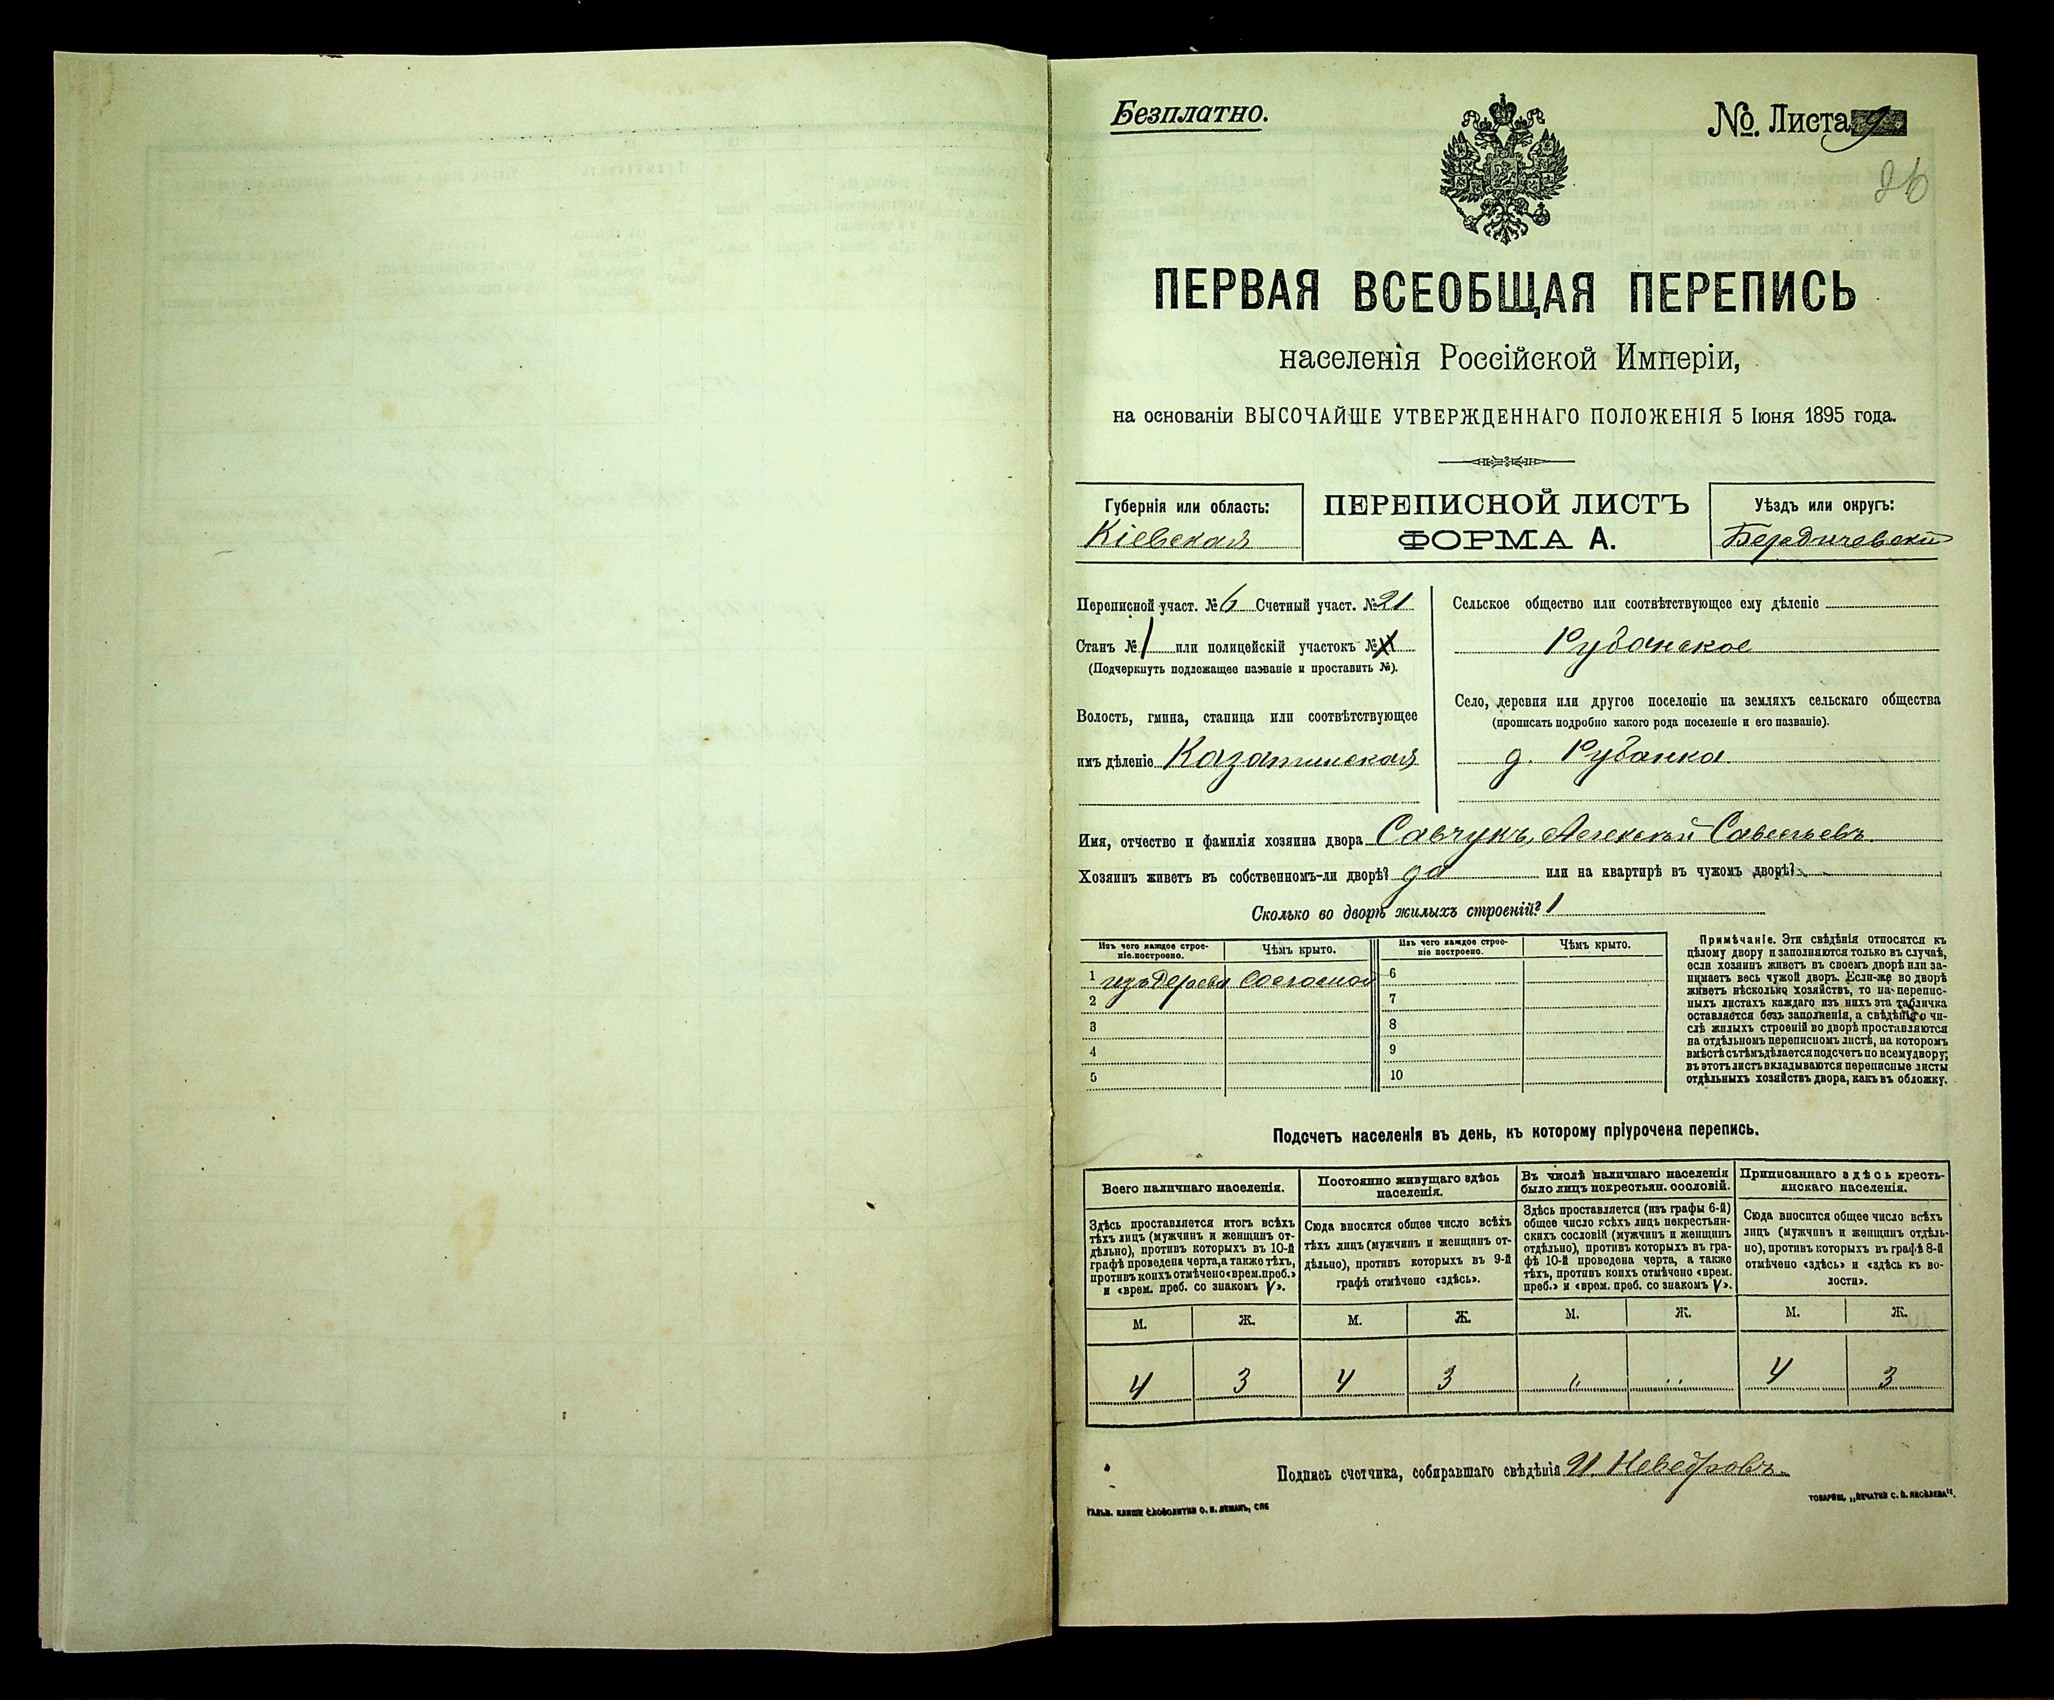 Безплатно.
№. Листа 9
26
ПЕРВАЯ ВСЕОБЩАЯ ПЕРЕПИСЬ
населенія Россійской Имперіи,
на основаніи ВЫСОЧАЙШЕ УТВЕРЖДЕННАГО ПОЛОЖЕНІЯ 5 Іюня 1895 года.
Губернія или область:
Кіевская
ПЕРЕПИСНОЙ ЛИСТЪ
ФОРМА А.
Уѣздъ или округъ:
Бердичевскій
Переписной участ. № 6 Счетный участ. № 21
Станъ № 1 или полицейскій участокъ №
(Подчеркнуть подлежащее названіе и проставить №).
Волость, гмина, станица или соотвѣтствующее
имъ дѣленіе Казатинская
Сельское общество или соотвѣтствующее ему дѣленіе
Рубанское
Село, деревня или другое поселеніе на земляхъ сельскаго общества
(прописать подробно какого рода поселеніе и его названіе).
д. Рубанка
Имя, отчество и фамилія хозяина двора Савчукъ, Алексѣй Савельевъ
Хозяинъ живетъ въ собственномъ-ли дворѣ? да или на квартирѣ въ чужомъ дворѣ?
Сколько во дворѣ жилыхъ строеній? 1
Изъ чего каждое строе-
ніе построено.
Чѣмъ крыто.
Изъ чего каждое строе-
ніе построено.
Чѣмъ крыто.
1 изъ дерева соломой 6
2 7
3 8
4 9
5 10
Примѣчаніе. Эти свѣдѣнія относятся къ
цѣлому двору и заполняются только въ случаѣ,
если хозяинъ живетъ въ своемъ дворѣ или за-
нимаетъ весь чужой дворъ. Если-же во дворѣ
живетъ нѣсколько хозяйствъ, то на перепис-
ныхъ листахъ каждаго изъ нихъ эта табличка
оставляется безъ заполненія, а свѣдѣнія о чи-
слѣ жилыхъ строеній во дворѣ проставляются
на отдѣльномъ переписномъ листѣ, на которомъ
вмѣстѣ съ тѣмъ дѣлается подсчетъ по всему двору;
въ этотъ листъ вкладываются переписные листы
отдѣльныхъ хозяйствъ двора, какъ въ обложку.
Подсчетъ населенія въ день, къ которому пріурочена перепись.
Всего наличнаго населенія.
Здѣсь проставляется итогъ всѣхъ
тѣхъ лицъ (мужчинъ и женщинъ от-
дѣльно), противъ которыхъ въ 10-й
графѣ проведена черта, а также тѣхъ,
противъ коихъ отмѣчено «врем. преб.»
и «врем. преб. со знакомъ V».
Постоянно живущаго здѣсь
населенія.
Сюда вносится общее число всѣхъ
тѣхъ лицъ (мужчинъ и женщинъ от-
дѣльно), противъ которыхъ въ 9-й
графѣ отмѣчено «здѣсь».
Въ числѣ наличнаго населенія
было лицъ некрестьян. сословій.
Здѣсь проставляется (изъ графы 6-й)
общее число всѣхъ лицъ некрестьян-
скихъ сословій (мужчинъ и женщинъ
отдѣльно), противъ которыхъ въ гра-
фѣ 10-й проведена черта, а также
тѣхъ, противъ коихъ отмѣчено «врем.
преб.» и «врем. преб. со знакомъ V».
Приписаннаго здѣсь кресть-
янскаго населенія.
Сюда вносится общее число всѣхъ
лицъ (мужчинъ и женщинъ отдѣль-
но), противъ которыхъ въ графѣ 8-й
отмѣчено «здѣсь» и «здѣсь къ во-
лости».
М. Ж. М. Ж. М. Ж. М. Ж.
4 3 4 3 " " 4 3
Подпись счетчика, собиравшаго свѣдѣнія
ГАЛЬВ. КЛИШЕ СЛОВОЛИТНИ О. И. ЛЕМАНЪ, СПБ
ТОВАРИЩ. „ПЕЧАТНЯ С. П. ЯКОВЛЕВА".